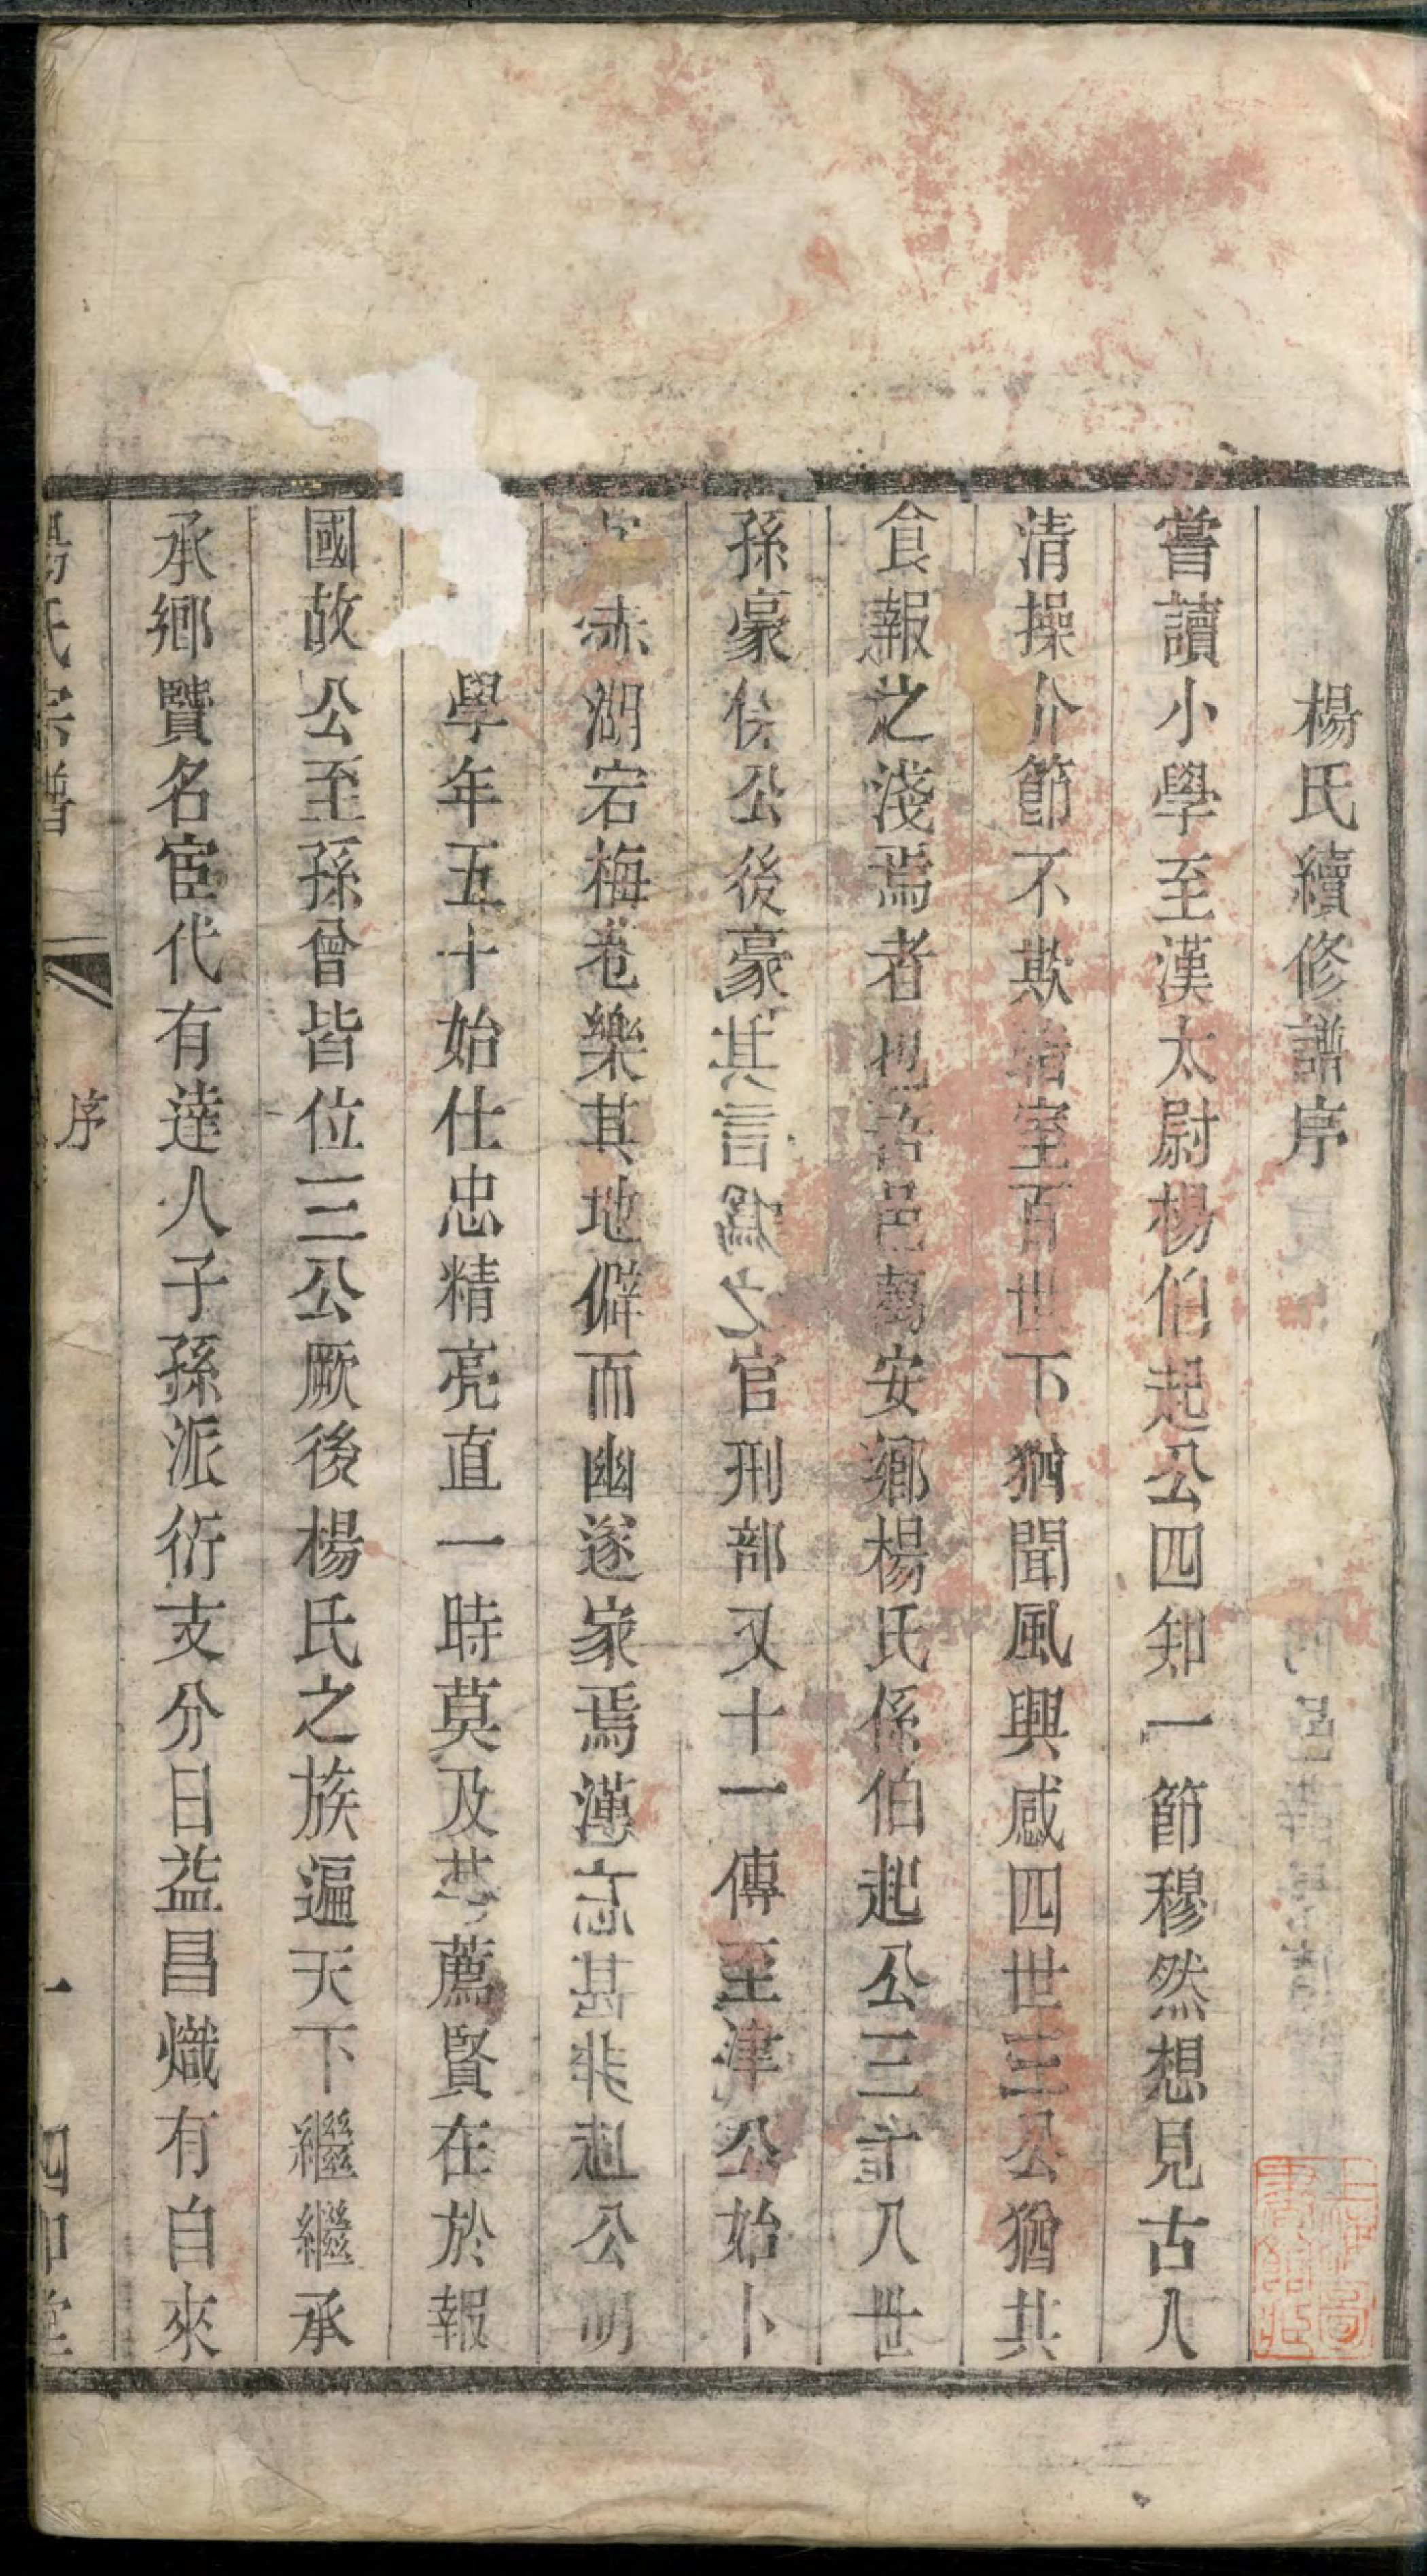 楊氏續修譜序
嘗讀小學至漢太尉楊伯起公四知一節穆然想見古人
清操介節不欺暗室百世下猶聞風興感四世三公猶共
食報之淺焉者也吾邑萬安鄉楊氏係伯起公三十八世
孫豪侯公後豪其言為之官刑部又十一傳至津公始卜
赤湖宕梅巷樂其地僻而幽遂家焉薄言甚非起公明
學年五十始仕忠精亮直一時莫及其薦賢在於報
國故公至孫曾皆位三公厥後楊氏之族遍天下繼繼承
承鄉賢名宦代有達人子孫派衍支分日益昌熾有自來
楊氏宗譜 序 一 四知堂